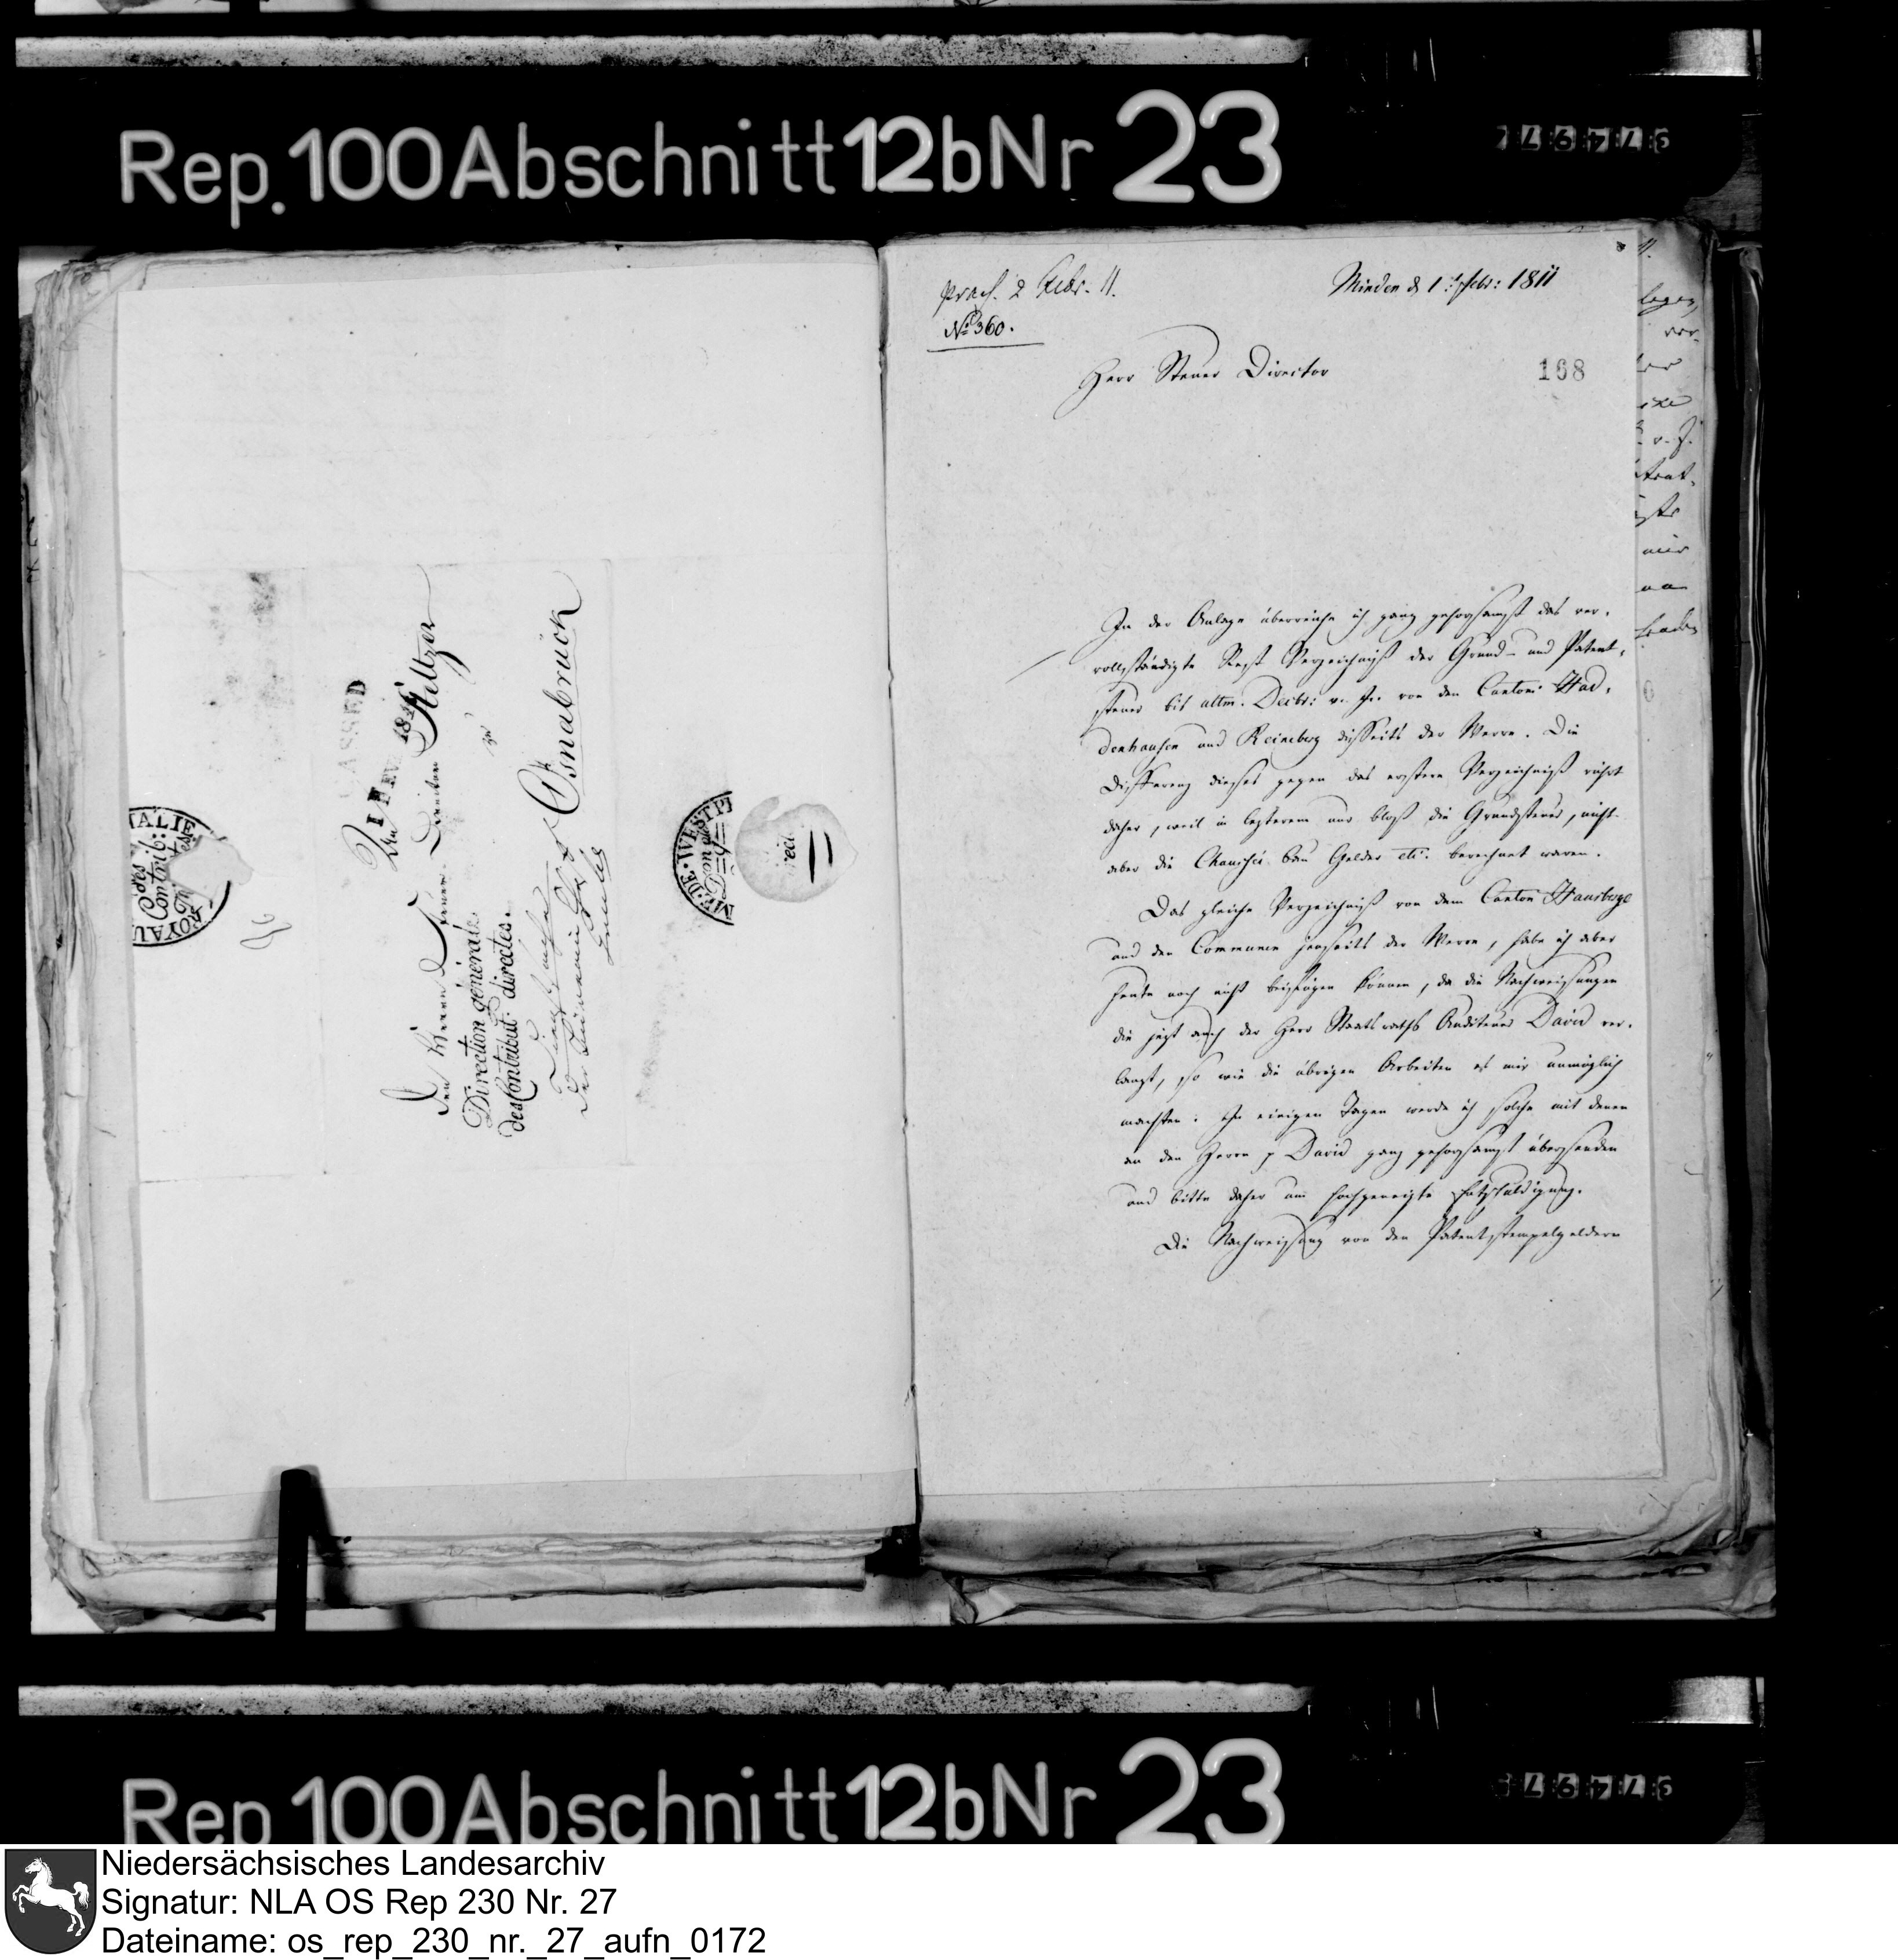 Rep. 100 Abschnitt 12b Nr 23
Den Herrn Steuer Director Seltzer
zu
Osnabrück
Direction générale
des Contribut: directes.
1 FEV 1811
praes. 2 Febr. 11.
No 360.
Minden d 1t Febr: 1811
168
Herr Steuer Director
In der Anlage überreiche ich ganz gehorsamst das ver-
vollständigte Rest Verzeichniß der Grund- und Patent-
steuer bis ultm. Decbr: v. Js. von den Cantons Had-
denhausen und Reineberg disseits der Werre. Die
Differenz dieses gegen das erstere Verzeichniß rührt
daher, weil in lezterem nur bloß die Grundsteuer, nicht
aber die Chaussée bau Gelder etc. berechnet waren.
Das gleiche Verzeichniß von dem Canton Hausberge
und den Communen jenseits der Werre, habe ich aber
heute noch nicht beifügen können, da die Nachweisungen
die jezt auch der Herr Staatsraths Auditeur David ver-
langt, so wie die übrigen Arbeiten es mir unmöglich
machten. In einigen Tagen werde ich solche mit denen
an den Herrn p David ganz gehorsamst übersenden
und bitte daher um hochgeneigte Entschuldigung.
Die Nachweisung von den Patentstempelgeldern
Rep 100 Abschnitt 12b Nr 23
Niedersächsisches Landesarchiv
Signatur: NLA OS Rep 230 Nr. 27
Dateiname: os_rep_230_nr._27_aufn_0172